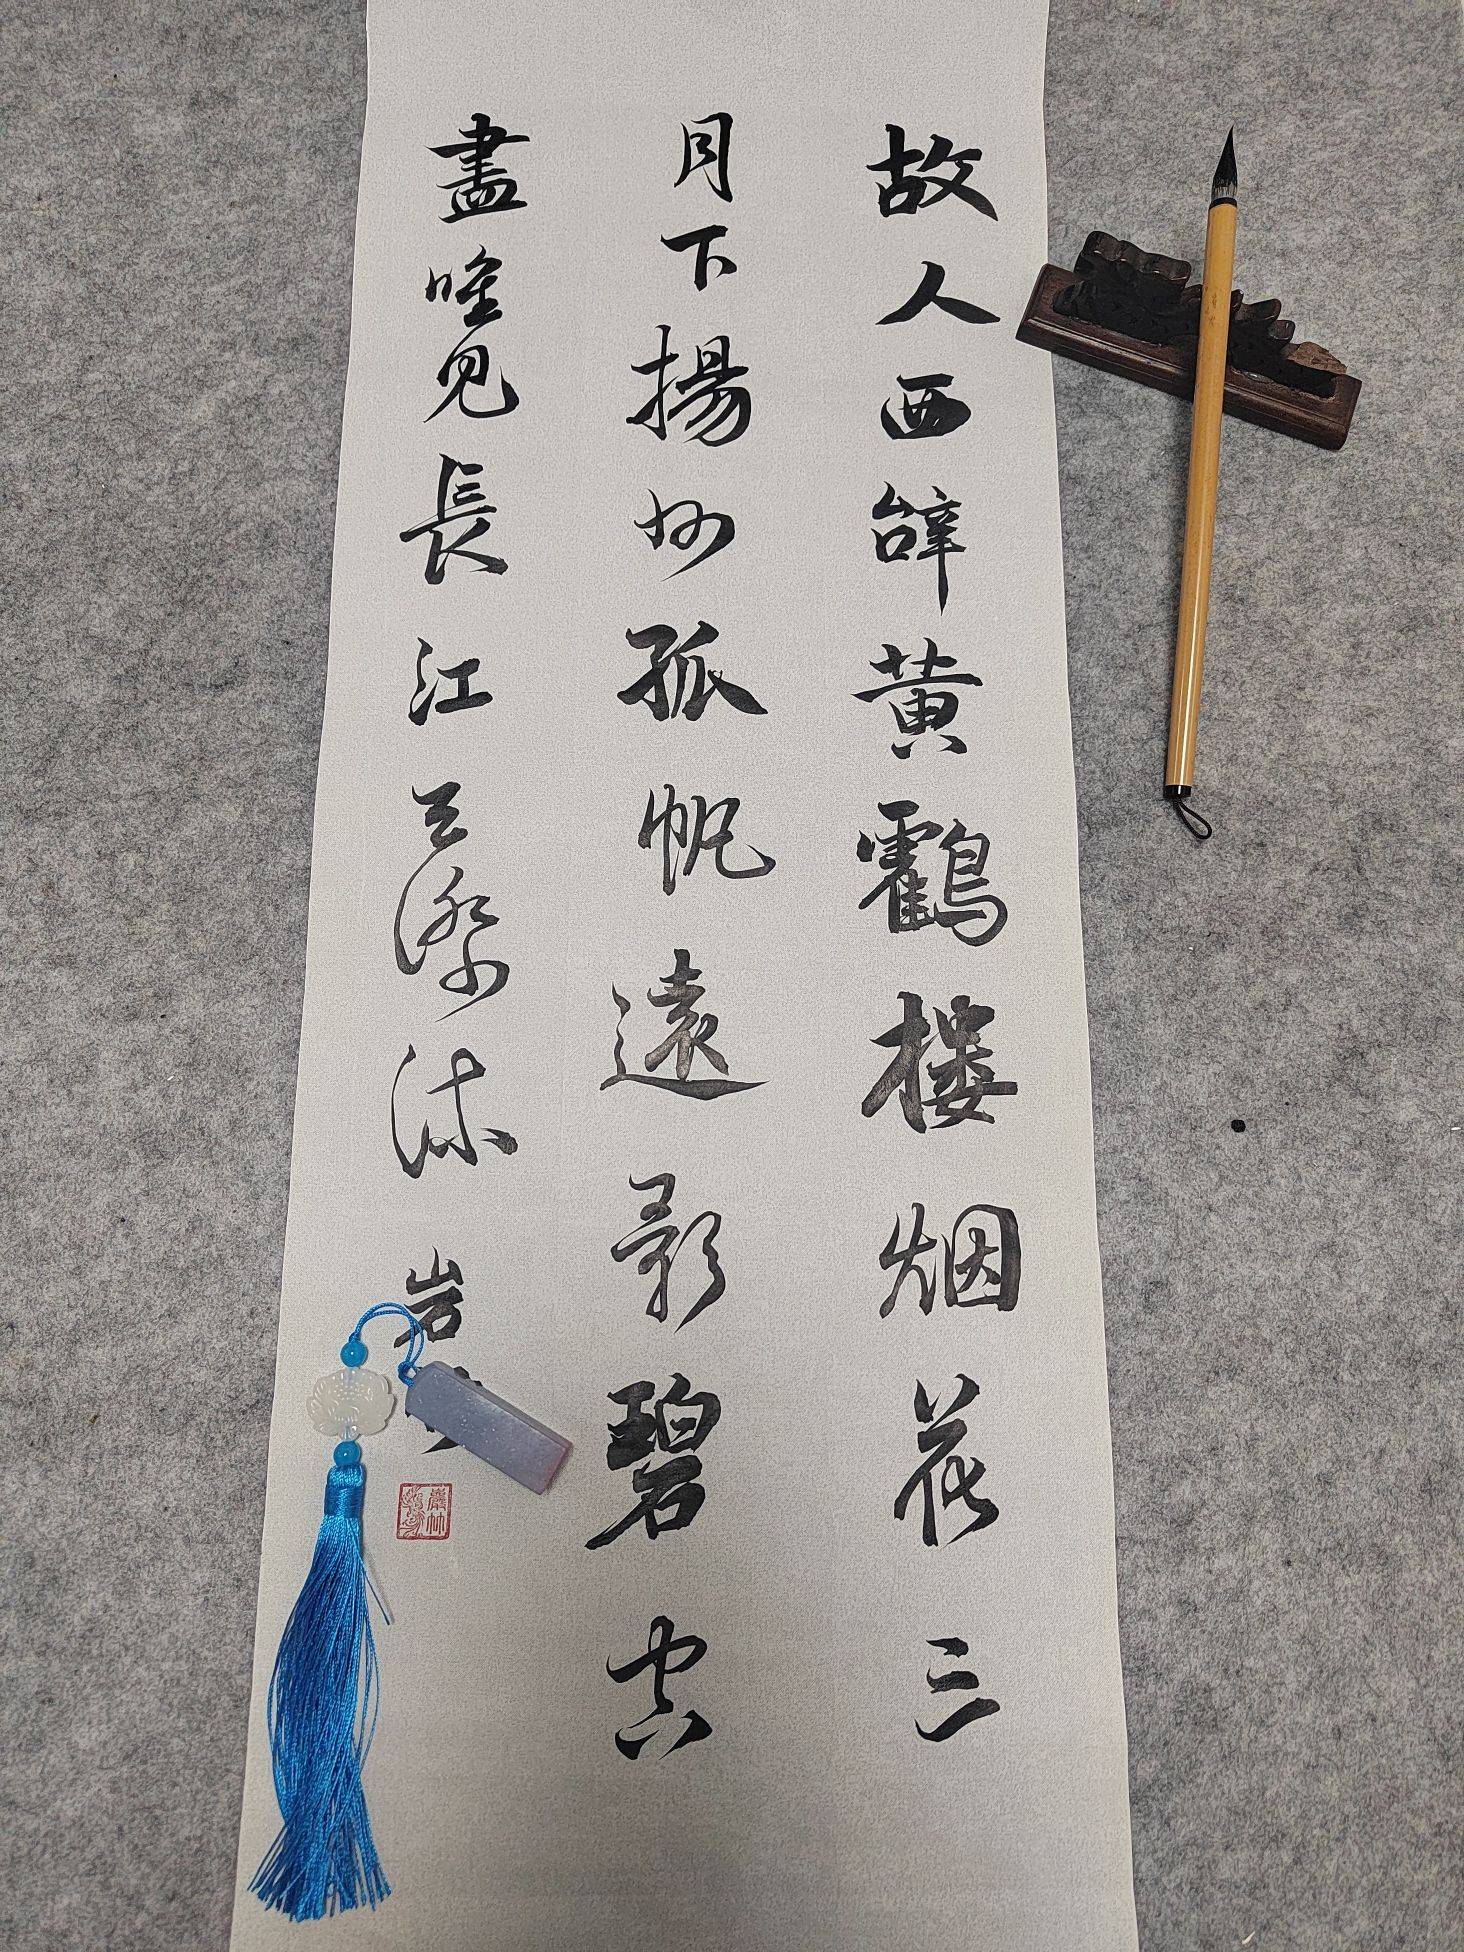 故人西辭黃鶴樓烟花三
月下揚州孤帆遠影碧空
盡唯見長江天際流
岩